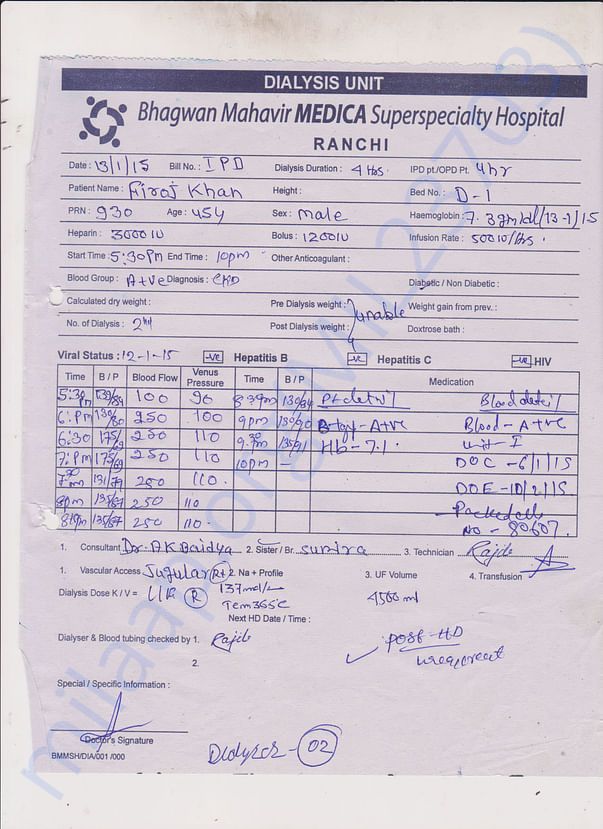 DIALYSIS UNIT
Bhagwan Mahavir MEDICA Superspecialty Hospital
RANCHI
Date : 13/1/15 Bill No. : IPD Dialysis Duration : 4 Hrs IPD pt./OPD Pt. 4hr
Patient Name : Firoj Khan Height : Bed No. : D-1
PRN : 930 Age : 45Y Sex : male Haemoglobin : 7.3gm/dl (13-1)15
Heparin : 3000IU Bolus : 1200IU Infusion Rate : 500IU/hrs.
Start Time : 5:30Pm End Time : 10pm Other Anticoagulant :
Blood Group : A+ve Diagnosis : CKD Diabetic / Non Diabetic :
Calculated dry weight : Pre Dialysis weight : Unable Weight gain from prev. :
No. of Dialysis : 2nd Post Dialysis weight : Doxtrose bath :
Viral Status : 12-1-15 -ve Hepatitis B -ve Hepatitis C -ve HIV
Time B / P Blood Flow Venus Pressure Time B / P Medication
5:30 Pm 100 90 8:30pm Pt detail Blood detail
6: Pm 130/80 250 100 9pm 130/90 B-tgy-A+ve Blood - A+ve
6:30 250 110 9.30 Hb-7.1. unit-I
7: Pm 250 110 10pm - DOC - 6/1/15
250 110. DOE - 10/2/15.
8pm 250 110 Packed cells
250 110. NO - 80607.
1. Consultant Dr. AK Baidya 2. Sister / Br. sunira 3. Technician Rajib
1. Vascular Access Jugular (Rt) 2. Na + Profile 3. UF Volume 4. Transfusion
137mol/L
Dialysis Dose K / V = (R) Tem 36.5°C 4500 ml
Next HD Date / Time :
Dialyser & Blood tubing checked by 1. Rajib post-HD
2. urea, creat
Special / Specific Information :
Doctor's Signature
BMMSH/DIA/001 /000
Dialyzer - 02